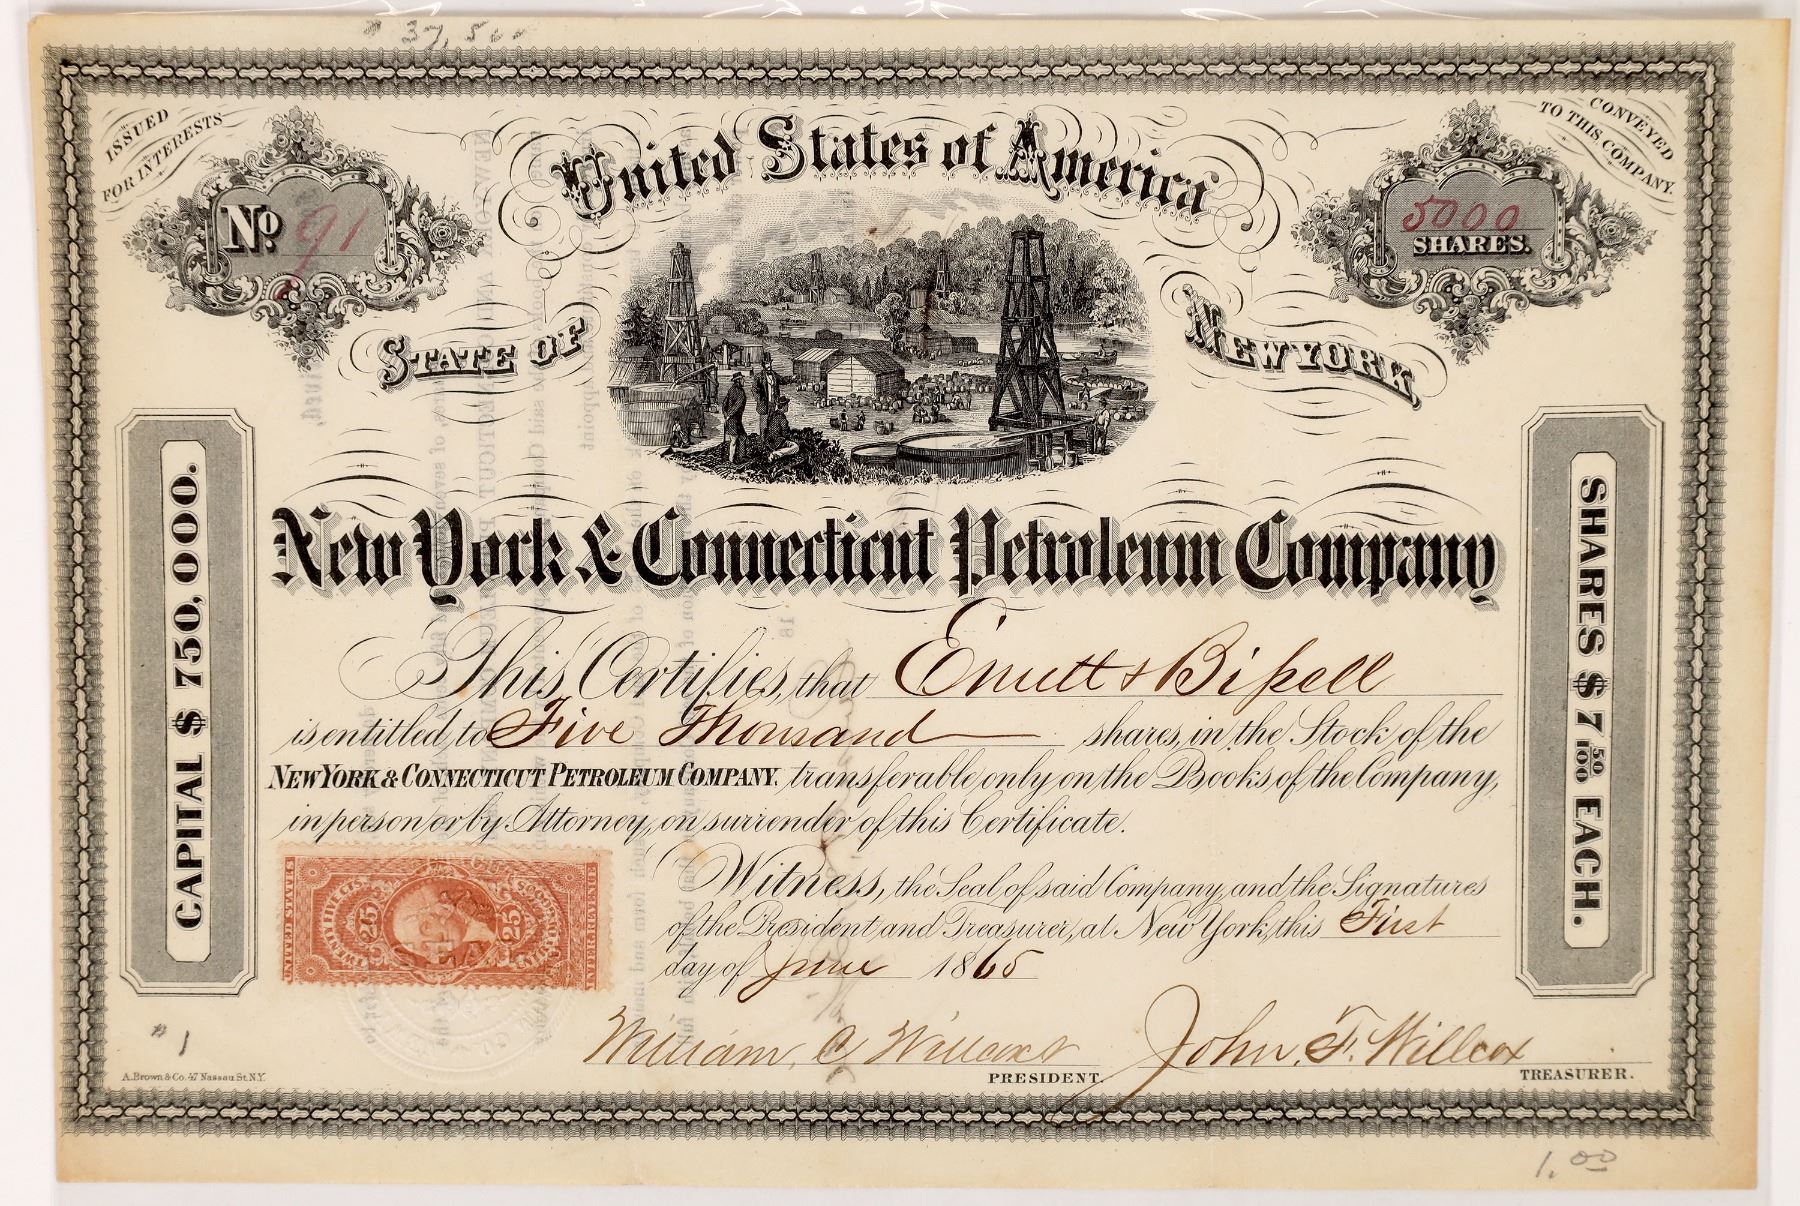 $ 37,500
ISSUED
FOR INTERESTS
CONVEYED
TO THIS COMPANY.
United States of America
No. 91
5000
SHARES.
STATE OF NEW YORK
CAPITAL $ 750,000.
SHARES $ 7 50/100 EACH.
New York & Connecticut Petroleum Company
This Certifies, that Emett & Bissell
is entitled to Five Thousand shares, in the Stock of the
NEW YORK & CONNECTICUT PETROLEUM COMPANY, transferable only on the Books of the Company,
in person or by Attorney, on surrender of this Certificate.
Witness, the Seal of said Company, and the Signatures
of the President and Treasurer, at New York, this First
day of June 1865
UNITED STATES
TWENTY FIVE CTS.
25
25
INTER. REVENUE
William C Willcox
PRESIDENT.
John F. Willcox
TREASURER.
# 1
A. Brown & Co. 47 Nassau St. N.Y.
1.00